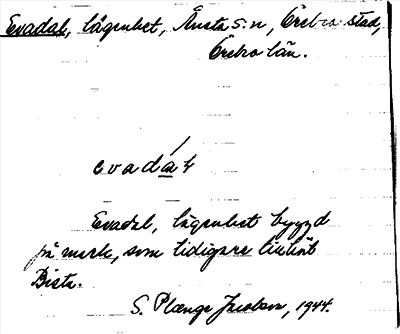 Evadal, lägenhet, Ånsta s:n, Örebro stad,
Örebro län.
evadál
Evadal, lägenhet byggd
på mark, som tidigare tillhört
Bista.
S. Plænge Jacobson, 1944.